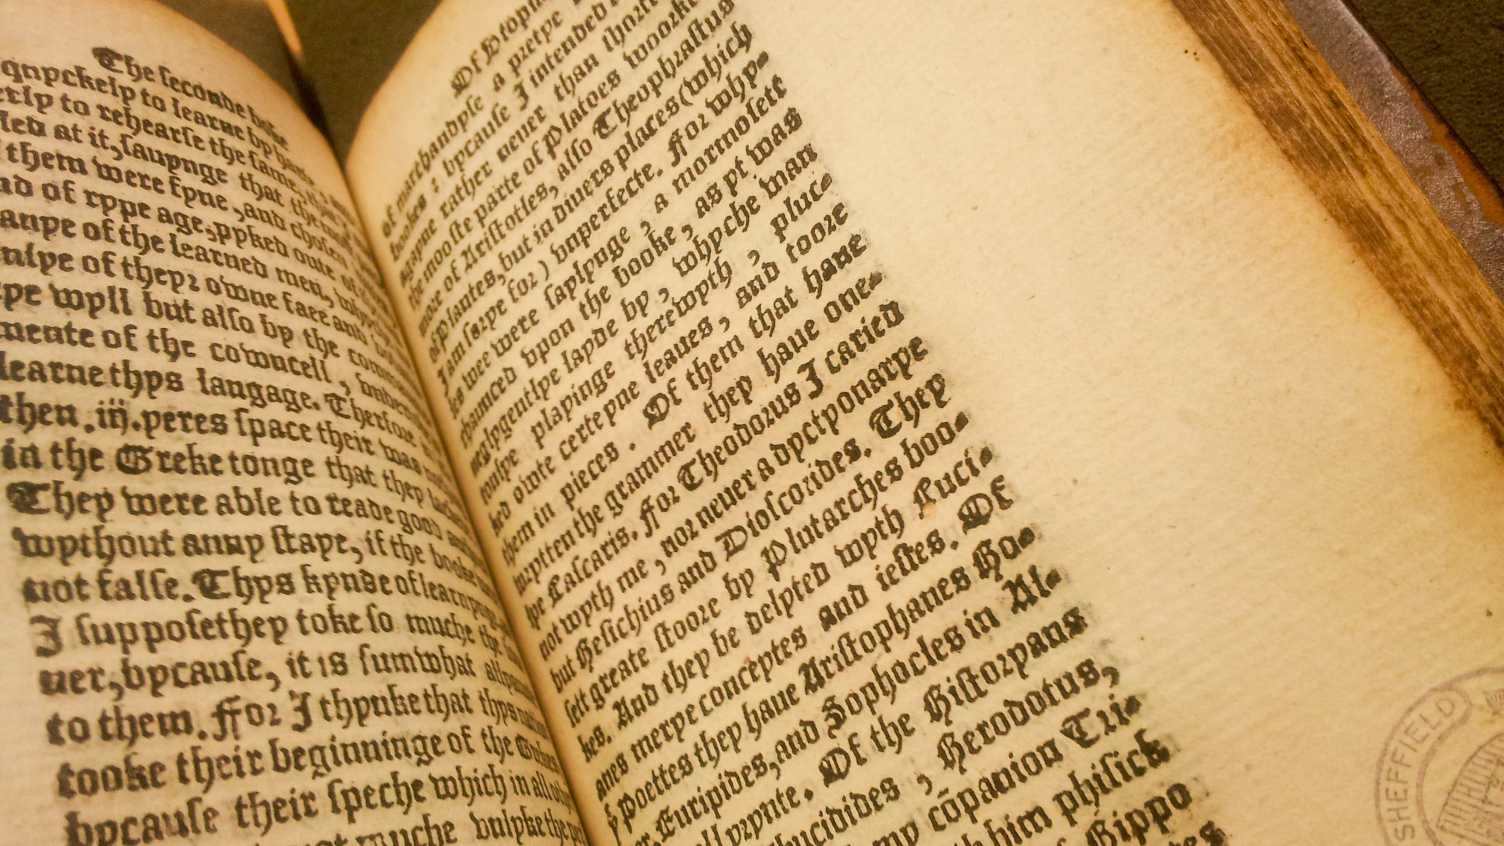 The seconde boke
quyckely to learne by
erly to rehearse the same,
led at it, sauynge that the
them were fyne, and chosen
nd of rype age, pyked oute of
anye of the learned men, whyche
nlye of theyr owne free and
ye wyll but also by the comaun
mente of the councell, vnder
learne thys langage. Therfore
then .iij. yeres space their was not
in the Greke tonge that they lacked
They were able to reade good
wythout anny staye, if the booke were
not false. Thys kynde of learnynge
I suppose they toke so muche the
uer, bycause, it is sumwhat
to them. For I thynke that thys
tooke their beginninge of the
bycause their speche which in all
muche vnlyke the
Of Vtopia
of marchandyse a pretye
bookes : bycause I intended
agayne rather neuer than shortly
the mooste parte of Platoes woorkes
more of Aristotles, also Theophrastus
of plantes, but in diuers places (which
I am sorye for) vnperfecte. For why-
les wee were saylynge, a mormosett
chaunced vpon the booke, as yt was
neglygentlye layde by, whyche wan
tonlye playinge therewyth, pluc-
ked owte certeyne leaues, and toore
them in pieces. Of them that haue
wrytten the grammer they haue one-
lye Lascaris. For Theodorus I caried
not wyth me, nor neuer a dyctyonarye
but Hesichius and Dioscorides. They
sett greate stoore by Plutarches boo-
kes. And they be delyted wyth Luci-
anes merye conceytes and iestes. Of
yͤ Poettes they haue Aristophanes Ho-
mer, Euripides, and Sophocles in Al-
small prynte. Of the Historyans
Thucidides, Herodotus,
my cõpanion Tri-
him phisick
Hippo
SHEFFIELD